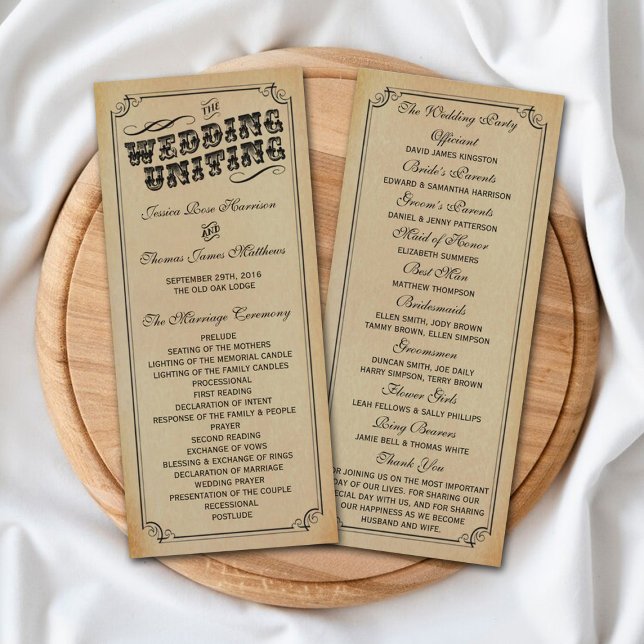 THE
WEDDING
UNITING
Jessica Rose Harrison
AND
Thomas James Matthews
SEPTEMBER 29TH, 2016
THE OLD OAK LODGE
The Marriage Ceremony
PRELUDE
SEATING OF THE MOTHERS
LIGHTING OF THE MEMORIAL CANDLE
LIGHTING OF THE FAMILY CANDLES
PROCESSIONAL
FIRST READING
DECLARATION OF INTENT
RESPONSE OF THE FAMILY & PEOPLE
PRAYER
SECOND READING
EXCHANGE OF VOWS
BLESSING & EXCHANGE OF RINGS
DECLARATION OF MARRIAGE
WEDDING PRAYER
PRESENTATION OF THE COUPLE
RECESSIONAL
POSTLUDE
The Wedding Party
Officiant
DAVID JAMES KINGSTON
Bride's Parents
EDWARD & SAMANTHA HARRISON
Groom's Parents
DANIEL & JENNY PATTERSON
Maid of Honor
ELIZABETH SUMMERS
Best Man
MATTHEW THOMPSON
Bridesmaids
ELLEN SMITH, JODY BROWN
TAMMY BROWN, ELLEN SIMPSON
Groomsmen
DUNCAN SMITH, JOE DAILY
HARRY SIMPSON, TERRY BROWN
Flower Girls
LEAH FELLOWS & SALLY PHILLIPS
Ring Bearers
JAMIE BELL & THOMAS WHITE
Thank You
FOR JOINING US ON THE MOST IMPORTANT
DAY OF OUR LIVES. FOR SHARING OUR
SPECIAL DAY WITH US, AND FOR SHARING
OUR HAPPINESS AS WE BECOME
HUSBAND AND WIFE.